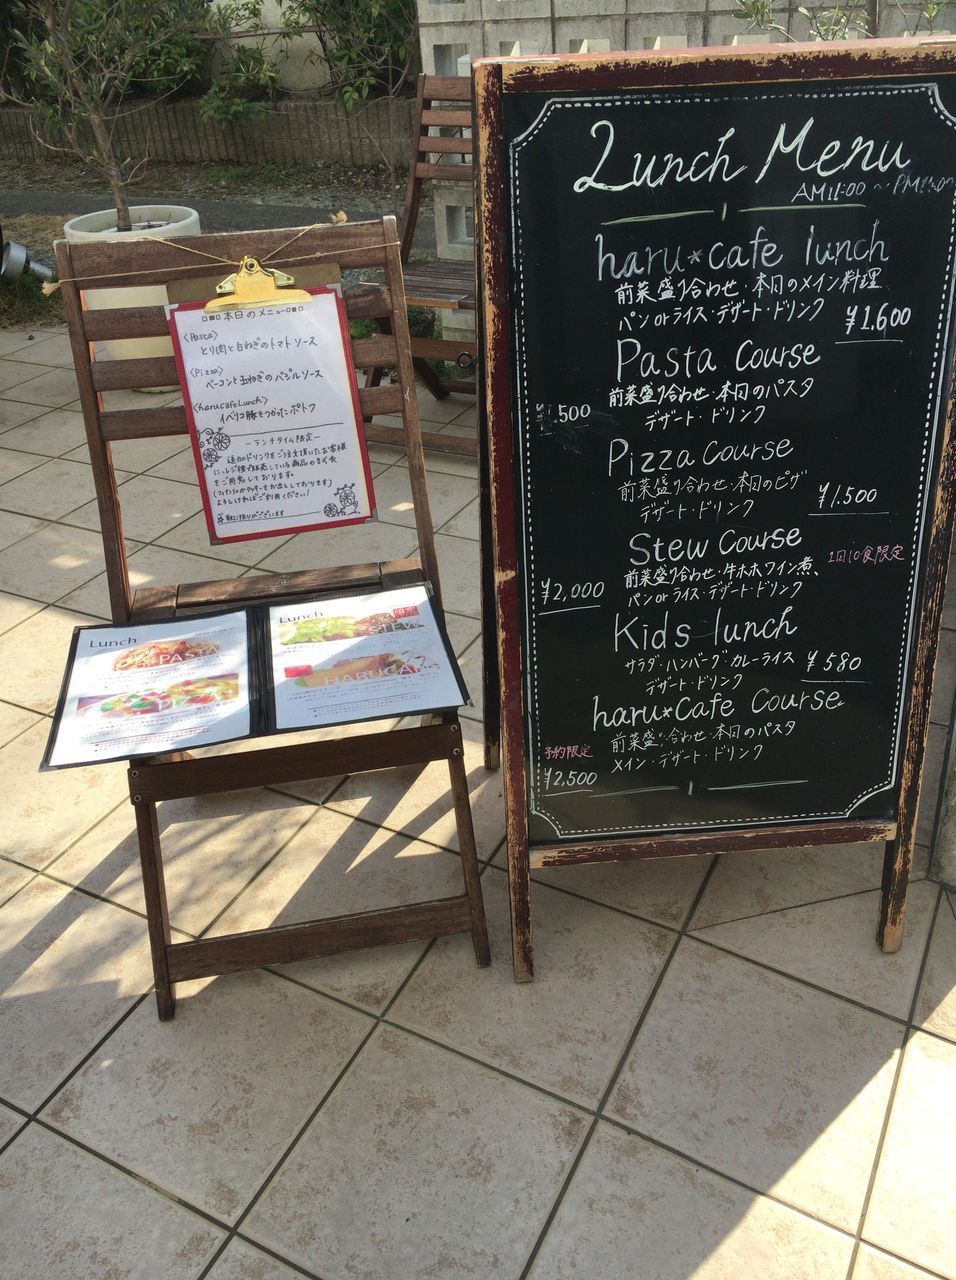 本日のメニュー
<Pasta>
とり肉と白ねぎのトマトソース
<Pizza>
ベーコンと玉ねぎのバジルソース
<harucafeLunch>
イベリコ豚をつかったポトフ
ーランチタイム限定ー
追加ドリンクをご注文頂いたお客様
に、レジ横で販売している商品のまめ食
をご用意しております。
よろしければご利用ください!
数に限りがございます
Lunch
PASTA
Lunch
限定
STEW
HARUCAFE
Lunch Menu
AM11:00 ~
haru*cafe lunch
前菜盛り合わせ・本日のメイン料理
パンorライス・デザート・ドリンク
¥1,600
Pasta Course
前菜盛り合わせ・本日のパスタ
デザート・ドリンク
¥1,500
Pizza Course
前菜盛り合わせ・本日のピザ
デザート・ドリンク
¥1,500
Stew Course
1日10食限定
前菜盛り合わせ・牛ホホワイン煮、
パンorライス・デザート・ドリンク
¥2,000
Kids lunch
サラダ・ハンバーグ・カレーライス
デザート・ドリンク
¥580
haru*cafe Course
前菜盛り合わせ・本日のパスタ
メイン・デザート・ドリンク
予約限定
¥2,500